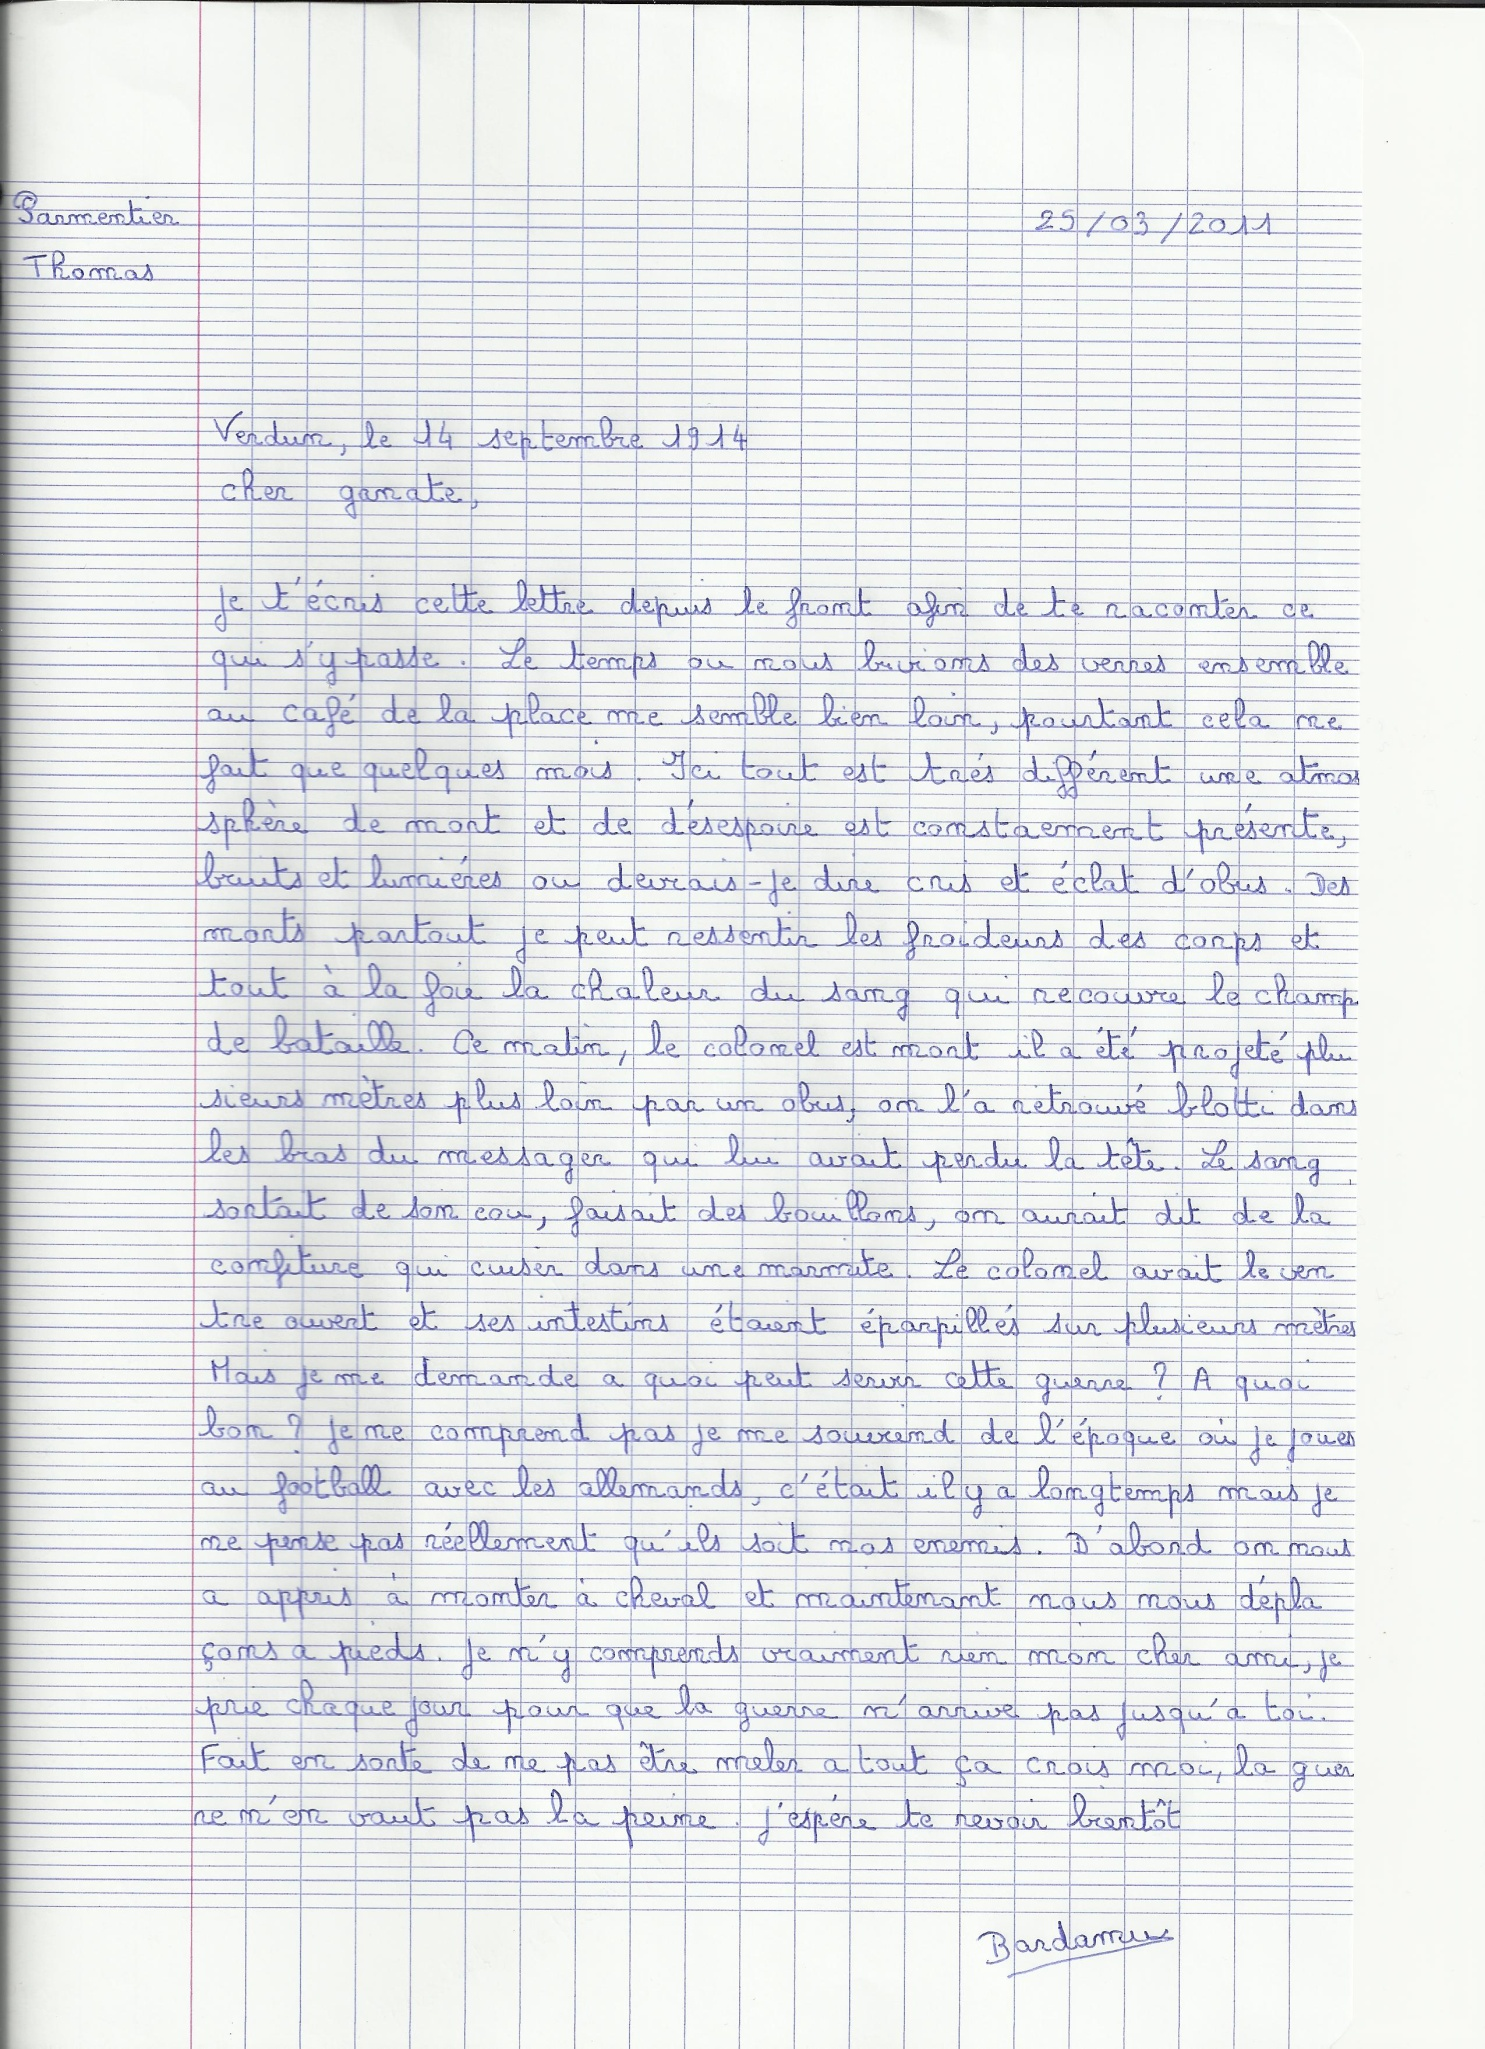 Parmentier
25/03/2011
Thomas
Verdun, le 14 septembre 1914
cher ganate,
je t'écris cette lettre depuis le front afin de te raconter ce
qui s'y passe. Le temps ou nous buvions des verres ensemble
au café de la place me semble bien loin, pourtant cela ne
fait que quelques mois. Ici tout est trés différent une atmos
sphère de mort et de désespoire est constaement présente,
bruits et lumiéres ou devrais-je dire cris et éclat d'obus. Des
morts partout je peut ressentir les froideurs des corps et
tout à la foie la chaleur du sang qui recouvre le champ
de bataille. Ce matin, le colonel est mort il a été projeté plu
sieurs mètres plus loin par un obus, on l'a retrouvé blotti dans
les bras du messager qui lui avait perdu la tête. Le sang
sortait de son cou, faisait des bouillons, on aurait dit de la
confiture qui cuiser dans une marmite. Le colonel avait le ven
tre ouvert et ses intestins étaient éparpillés sur plusieurs mètres
Mais je me demande a quoi peut servir cette guerre ? A quoi
bon ? je ne comprend pas je me souviend de l'époque où je jouer
au football avec les allemands, c'était il y a longtemps mais je
ne pense pas réellement qu'ils soit nos enemis. D'abord on nous
a appris à monter à cheval et maintenant nous nous dépla
çons a pieds. Je n'y comprends vraiment rien mon cher ami, je
prie chaque jour pour que la guerre n'arrive pas jusqu'a toi.
Fait en sorte de ne pas être meler a tout ça crois moi, la guer
re n'en vaut pas la peine. j'espére te revoir bientôt
Bardamu